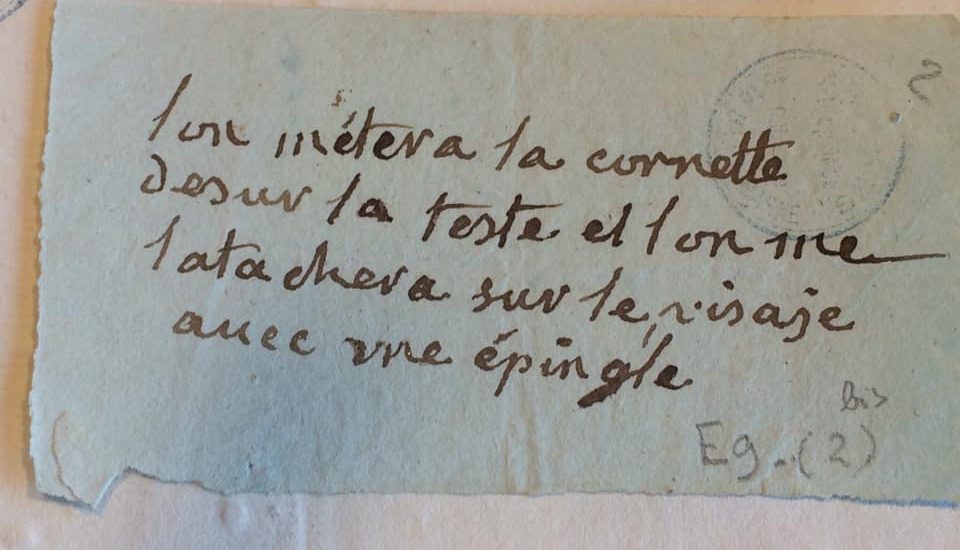 2
lon métera la cornette
desur la teste et lon me
latachera sur le visaje
auec vne épingle
bis
Eg. (2)